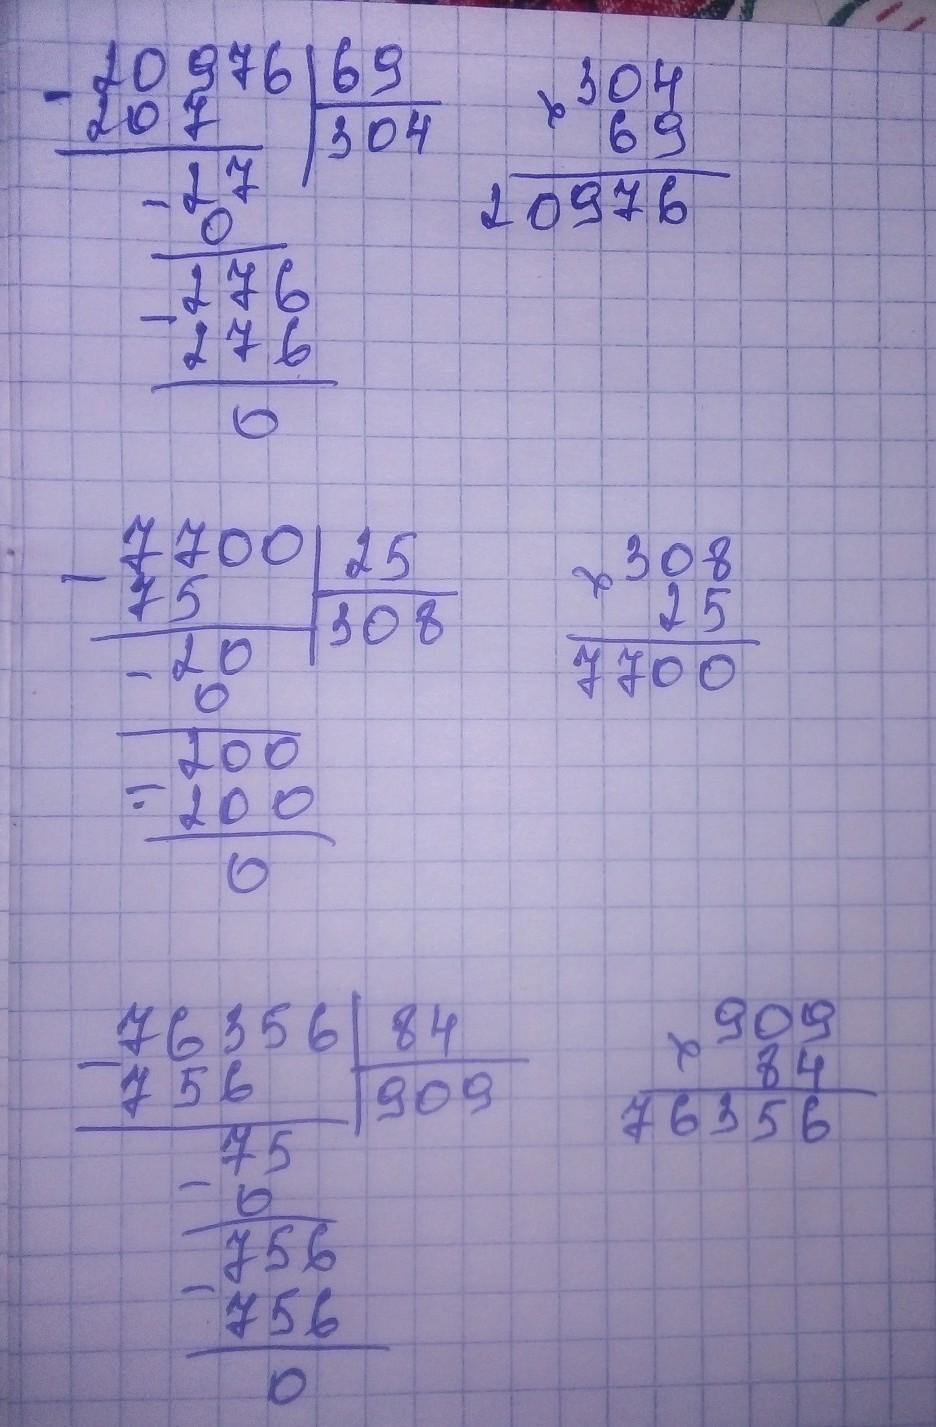 20976 | 69
- 207 | 304
- 27
0
276
- 276
0
× 304
69
20976
7700 | 25
- 75 | 308
- 20
0
200
- 200
0
× 308
25
7700
76356 | 84
- 756 | 909
75
- 0
756
- 756
0
× 909
84
76356